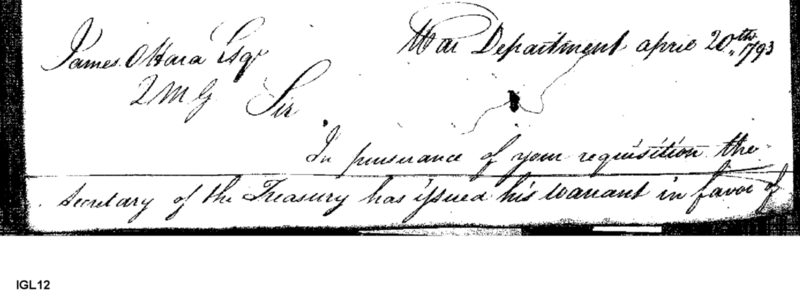 James OHara Esqr War Department april 20th 1793
2 M G Sir
In pursurance of your requisition the
Secretary of the Treasury has issued his warrant in favor of
IGL12